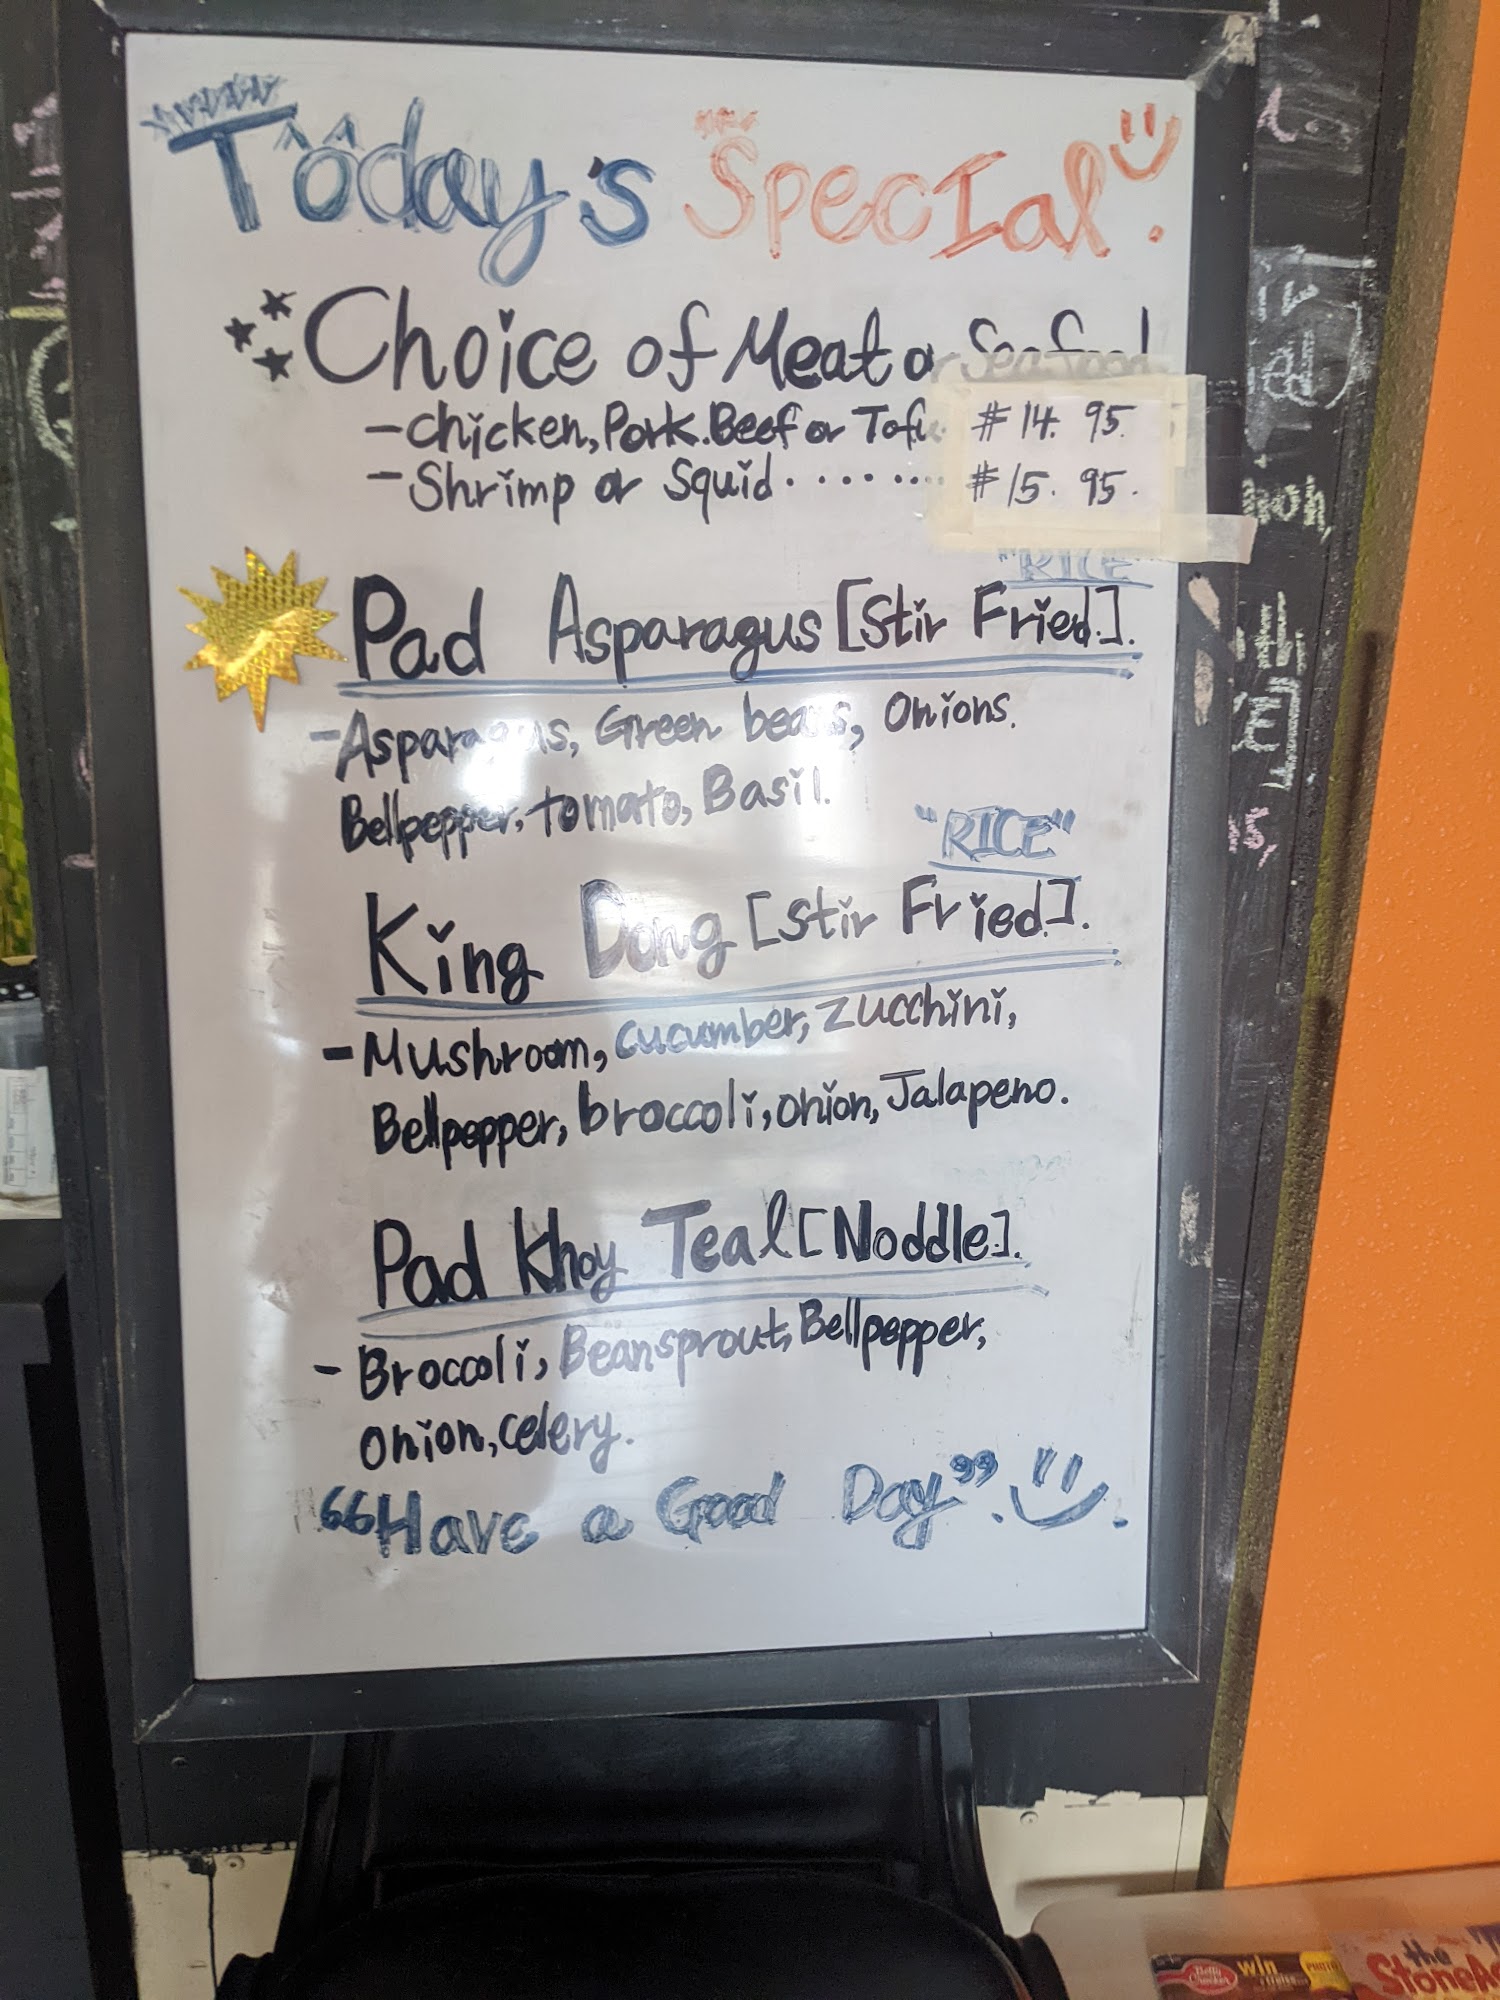 Today's SpecIal.
Choice of Meat or Seafood
- Chicken, Pork. Beef or Tofu. # 14. 95.
- Shrimp or Squid........ # 15. 95.
"RICE"
Pad Asparagus [Stir Fried.].
- Asparagus, Green beans, Onions.
Bellpepper, tomato, Basil.
"RICE"
King Dong [Stir Fried.].
- Mushroom, cucumber, zucchini,
Bellpepper, broccoli, onion, Jalapeno.
Pad Khoy Teal [Noddle].
- Broccoli, Beansprout, Bellpepper,
onion, celery.
"Have a Good Day".
Betty Crocker
win
the